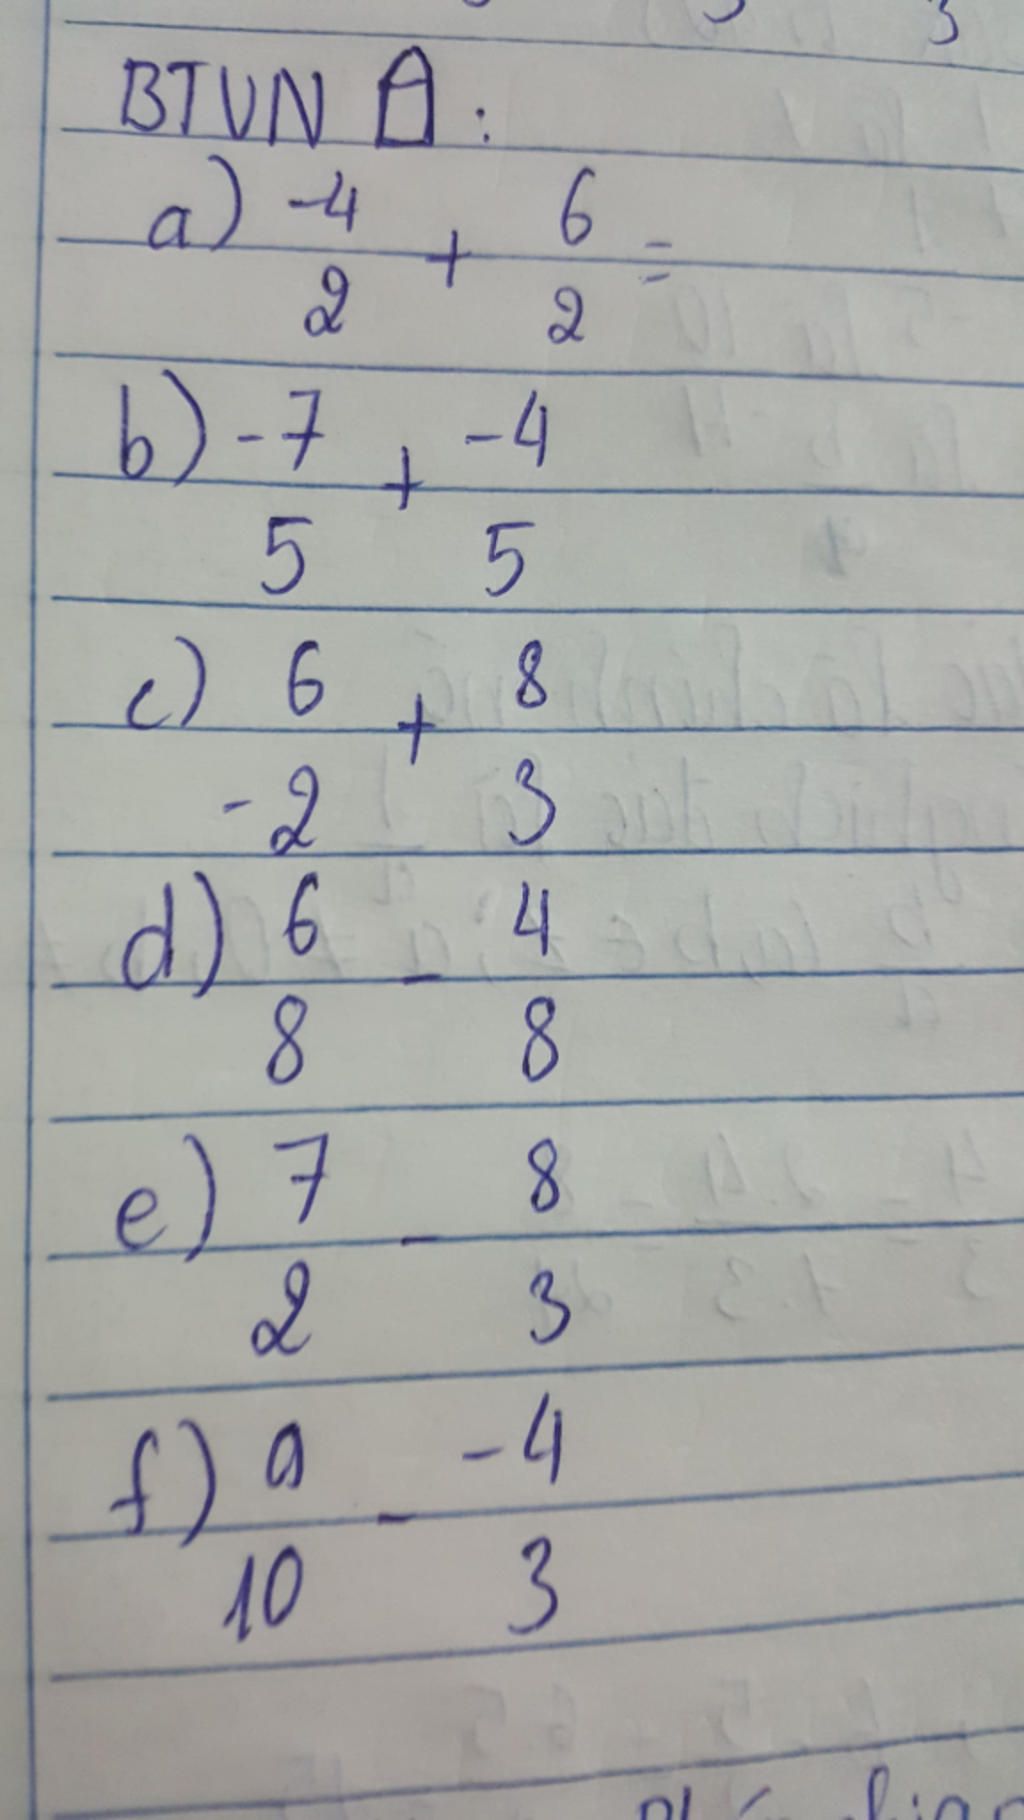 BTVN A:
a) -4/2 + 6/2 =
b) -7/5 + -4/5
c) 6/-2 + 8/3
d) 6/8 - 4/8
e) 7/2 - 8/3
f) 9/10 - -4/3